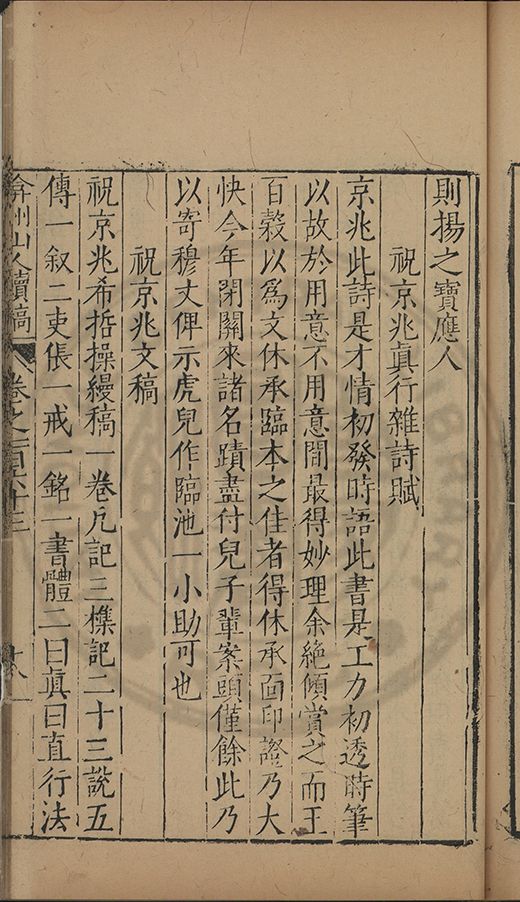 則揚之寶應人
祝京兆眞行雜詩賦
京兆此詩是才情初發時語此書是工力初透時筆
以故於用意不用意間最得妙理余絶傾賞之而王
百穀以爲文休承臨本之佳者得休承面印證乃大
快今年閉關來諸名蹟盡付兒子輩案頭僅餘此乃
以寄穆丈俾示虎兒作臨池一小助可也
祝京兆文稿
祝京兆希哲操縵稿一卷凡記三橅記二十三說五
傳一叙二吏倀一戒一銘一書體二曰眞曰直行法
弇州山人續稿
卷之一百六十三
十八